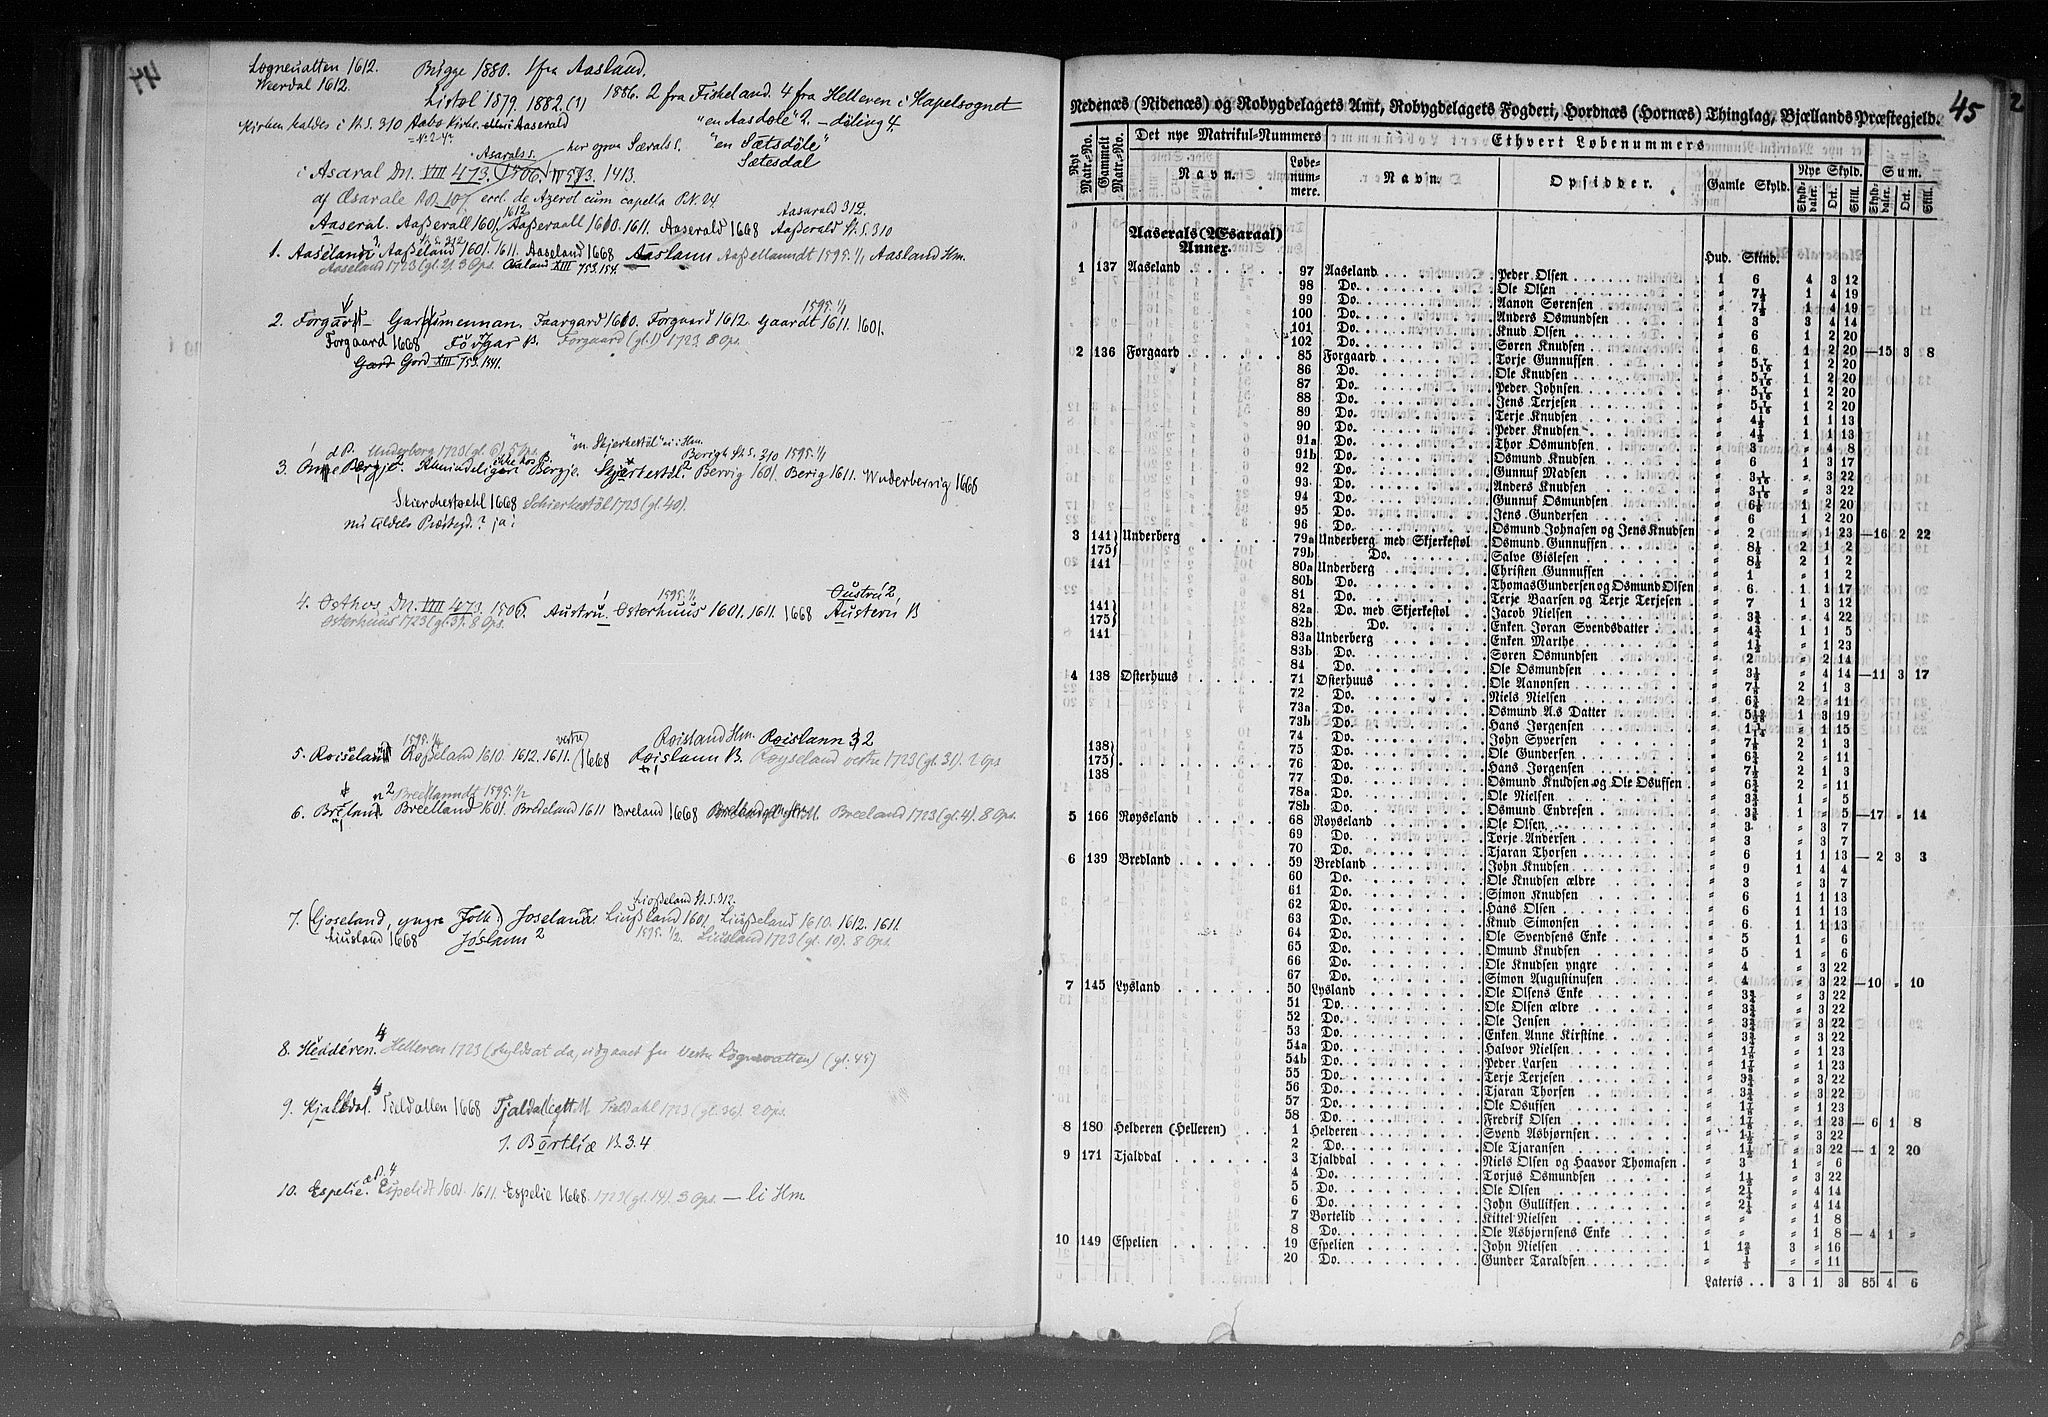 Løgneuatten 1612. Bugge 1880. 1 fra Aasland.
Weerdal 1612. Listøl 1879. 1882. (1) 1886. 2 fra Fiskeland. 4 fra Helleren i Kapelsognet
Kirken kaldes i St. S. 310 Aabo Kirke. "en Aasdøle" 2. – døling 4.
her ogsaa Særals s. "en Sætsdöle"
Asarals s. Sætesdal
i Asaral Dn. VIII 473. (1506.) IV 573. 1413.
af Æsarale RO. 107. eccl. de Azeröt cum capella P.N. 24
1612 Aasarald 312.
Aaseral. Aaßerall 1601. Aaßeraall 1610. 1611. Aaserald 1668 Aaßerald St. S. 310
1. Aaseland Aaßeland 1601. 1611. Aaseland 1668 Aaslann Aaßellanndt 1595. 1/1 Aasland Hm.
Aaseland 1723 (gl. 2). 3 Ops. Aaland XIII 753. 154.
1595. 1/1
2. Forgård – Gardsmennan. Faargard 1610. Forgaard 1612. Gaardt 1611. 1601.
Forgaard 1668 Forgaard (gl. 1) 1723. 8 Ops.
Gard Gord XIII 753. 1441.
d. P. Underberg 1723 (gl. 6). 5 Ops. "m. Skjerkestöl" ei i Hm. Berigh St. S. 310 1595. 1/1
3. Bergje. Bergje. Skjerkestöl 2 Bervig 1601. Berig 1611. Wnderbervig 1668
Skierchestoehl 1668 Schierkestöl 1723 (gl. 40).
nu tildels Præstegd.? ja!
1595. 1/1 Oustrú 2,
4. Osthos Dn. VIII 473. 1506. Austrú. Osterhuus 1601. 1611. 1668 Austern B
Osterhuus 1723 (gl. 3). 8 Ops.
1595. 1/2 vestre Roisland Hm. Roislann 2
5. Roiseland Roiseland 1610. 1612. 1611. 1668 Roislann B. Røyseland vestre 1723 (gl. 31). 2 Ops
Breellanndt 1595. 1/2
6. Breland Breelland 1601. Bredeland 1611 Breland 1668 Breeland 1723 (gl. 4). 8 Ops.
Lioßeland St. S. 312.
7. (Ljoseland, yngre Folk). Joseland. Liußland 1601. Liußeland 1610. 1612. 1611.
Liusland 1668 Jóslann 2 1595. 1/2. Liusland 1723 (gl. 10). 8 Ops.
8. Hedderen. 4 Helleren 1723 (skyldsat da, udgaaet fra Vestre Lognevatten) (gl. 45)
9. Kjalldal. 4 Tieldallen 1668 Tjaldal Tieldahl 1723 (gl. 36). 2 Ops.
7. Bortliæ B. 3. 4
10. Espelie. Espelidt 1601. 1611. Espelie 1668. 1723 (gl. 14). 3 Ops. – li Hm
45
Nedenæs (Nidenæs) og Robygdelagets Amt, Robygdelagets Fogderi, Hordnæs (Hornæs) Thinglag, Bjællands Præstegjeld.
Nyt Matr.-No. Gammelt Matr.-No. Det nye Matrikul-Nummers Ethvert Løbenummers
Navn. Løbenummere. Navn. Opsidder. Gamle Skyld. Nye Skyld. Sum.
Skylddaler. Ort. Skill. Skylddaler. Ort. Skill.
Aaserals (Æsaraal) Annex. Hud. Skind.
1 137 Aaseland 97 Aaseland Peder Olsen 1 6 4 3 12
98 Do. Ole Olsen " 7½ 1 4 19
99 Do. Aanon Sørensen " 7½ 1 4 19
100 Do. Anders Osmundsen 1 3 3 4 14
101 Do. Knud Olsen " 6 1 2 20
102 Do. Søren Knudsen " 6 1 2 20 —15 3 8
2 136 Forgaard 85 Forgaard Torje Gunnufsen " 5 7/16 1 2 20
86 Do. Ole Knudsen " 5 7/16 1 2 20
87 Do. Peder Johnsen " 5 7/16 1 2 20
88 Do. Jens Terjesen " 5 7/16 1 2 20
89 Do. Terje Knudsen " 4½ 1 1 13
90 Do. Peder Knudsen " 4½ 1 1 13
91a Do. Thor Osmundsen " 3 " 4 8
91b Do. Osmund Knudsen " 6 1 3 17
92 Do. Gunnuf Madsen " 3 1/16 " 3 22
93 Do. Anders Knudsen " 3 1/16 " 3 22
94 Do. Gunnuf Osmundsen " 6⅛ 1 2 20
95 Do. Jens Gundersen " 6 1 2 20
96 Do. Osmund Johnasen og Jens Knudsen " 2 " 1 23 —16 2 22
3 141} 175} Underberg 79a Underberg med Skjerkestøl Osmund Gunnufsen " 8½ 2 1 2
79b Do. Salve Gislesen " 8½ 2 1 2
141 80a Underberg Christen Gunnufsen " 1 " 1 2
80b Do. Thomas Gundersen og Osmund Olsen " 6 1 1 17
81 Do. Terje Baarsen og Terje Terjesen " 7 1 3 12
141} 175} 82a Do. med Skjerkestøl Jacob Nielsen " 3¾ " 4 22
82b Do. Enken Joran Svendsdatter " 4¾ 1 1 5
141 83a Underberg Enken Marthe " 1½ " 1 23
83b Do. Søren Osmundsen " 2 " 2 14
84 Do. Ole Osmundsen " 3½ " 4 14 —11 3 17
4 138 Osterhuus 71 Osterhuus Ole Aanonsen " 7½ 2 1 3
72 Do. Niels Nielsen " 6¾ 2 " 11
73a Do. Osmund A.s Datter 1 3 19
73b Do. Hans Jørgensen " 1 15
74 Do. John Syversen " 7½ 2 1 3
138} 175} 75 Do. Ole Gundersen " 6¾ 2 " 11
76 Do. Hans Jørgensen " 7½ 2 1 3
138 77 Do. Osmund Knudsen og Ole Osufsen " 6¾ 2 " 11
78a Do. Ole Nielsen " 3¾ 1 " 5
78b Do. Osmund Endresen 1 " 5 —17 " 14
5 166 Røyseland 68 Røyseland Ole Olsen " 3 " 3 7
69 Do. Torje Andersen " 3 " 3 7
70 Do. Tjaran Thorsen " 6 1 1 13 — 2 3 3
6 139 Bredland 59 Bredland John Knudsen " 9 1 4 4
60 Do. Ole Knudsen ældre " 3 " 3 7
61 Do. Simon Knudsen " 6 1 1 13
62 Do. Hans Olsen " 6 1 1 13
63 Do. Knud Simonsen " 6 1 1 13
64 Do. Ole Svendsens Enke " 5 1 " 6
65 Do. Omund Knudsen " 5 1 " 6
66 Do. Ole Knudsen yngre " 4 " 3 22
67 Do. Simon Augustinusen " 4 " 3 22 —10 " 10
7 145 Lysland 50 Lysland Ole Olsens Enke " 3¾ " 3 22
51 Do. Ole Olsen ældre " 3¾ " 3 22
52 Do. Ole Jensen " 3¾ " 3 22
53 Do. Enken Anne Kirstine " 3¾ " 3 22
54a Do. Halvor Nielsen " 1⅞ " 1 23
54b Do. Peder Larsen " 1⅞ " 1 23
55 Do. Terje Terjesen " 3¾ " 3 22
56 Do. Tjaran Thorsen " 3¾ " 3 22
57 Do. Ole Osufsen " 1⅞ " 1 23
58 Do. Fredrik Olsen " 1⅞ " 1 23 — 6 1 8
8 180 Helderen (Helleren) 1 Helderen Svend Asbjørnsen " 1½ " 3 22
2 Do. Ole Tjaransen " 1½ " 3 22 — 1 2 20
9 171 Tjalddal 3 Tjalddal Niels Olsen og Haavor Thomasen " 3 1 " 6
4 Do. Torjus Osmundsen " 1½ " 3 22
5 Do. Ole Olsen " 2¼ " 4 14
6 Do. John Gulliksen " 2¼ " 4 14
7 Bortelid Kittel Nielsen " " " 1 8
8 Do. Ole Asbjørnsens Enke " " " 1 8 — 4 1 "
10 149 Espelien 19 Espelien John Nielsen 1 1⅔ 3 " 16
20 Do. Gunder Taraldsen " ⅓ " " 11
Lateris 3 1 3 85 4 6